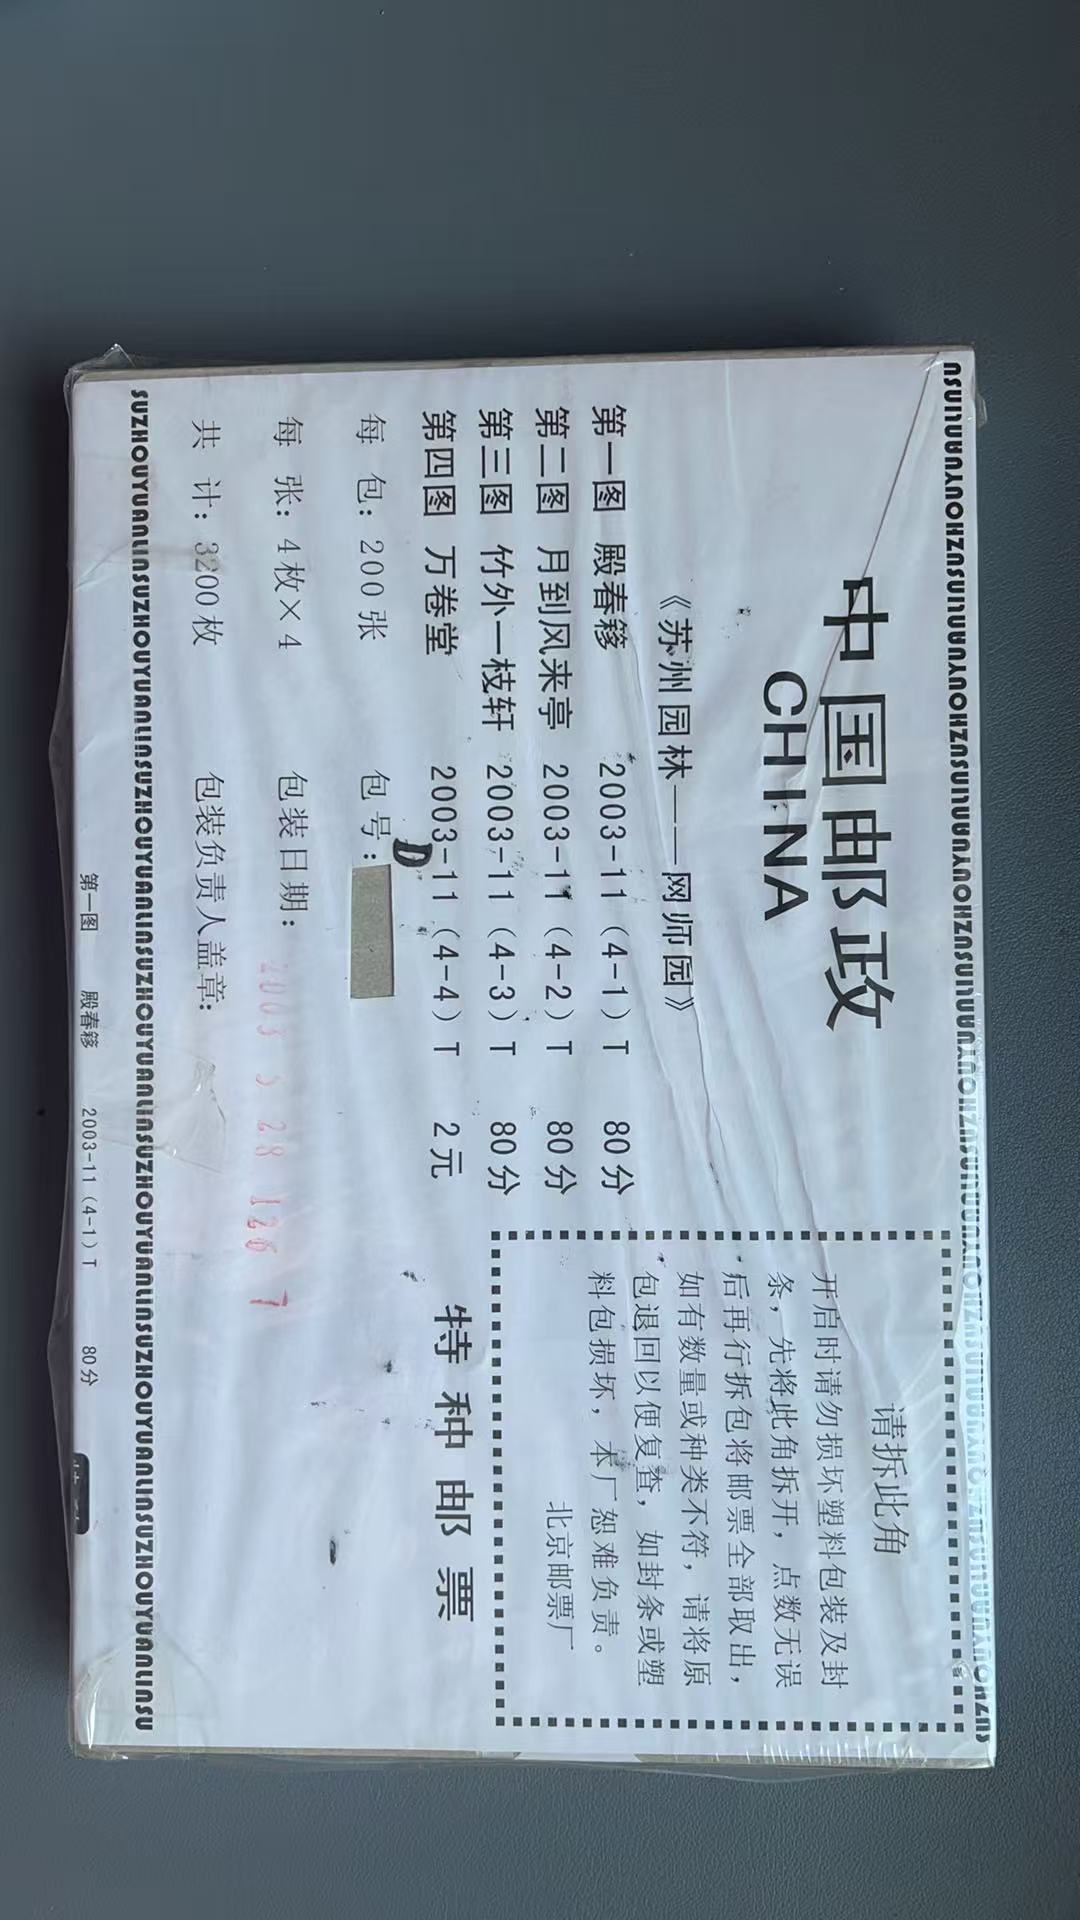 SUZHOUYUANLINSUZHOUYUANLINSUZHOUYUANLINSUZHOUYUANLINSUZHOUYUANLINSU
中国邮政
CHINA
《苏州园林——网师园》
第一图 殿春移 2003-11（4-1）T 80分
第二图 月到风来亭 2003-11（4-2）T 80分
第三图 竹外一枝轩 2003-11（4-3）T 80分
第四图 万卷堂 2003-11（4-4）T 2元
每 包：200张 包 号：D
每 张：4枚×4 包装日期：2003 5 28
共 计：3200枚 包装负责人盖章：
特种邮票
请拆此角
开启时请勿损坏塑料包装及封
条，先将此角拆开，点数无误
后再行拆包将邮票全部取出，
如有数量或种类不符，请将原
包退回以便复查，如封条或塑
料包损坏，本厂恕难负责。
北京邮票厂
SUZHOUYUANLINSUZHOUYUANLINSUZHOUYUANLINSUZHOUYUANLINSUZHOUYUANLINSU
第一图 殿春移 2003-11（4-1）T 80分